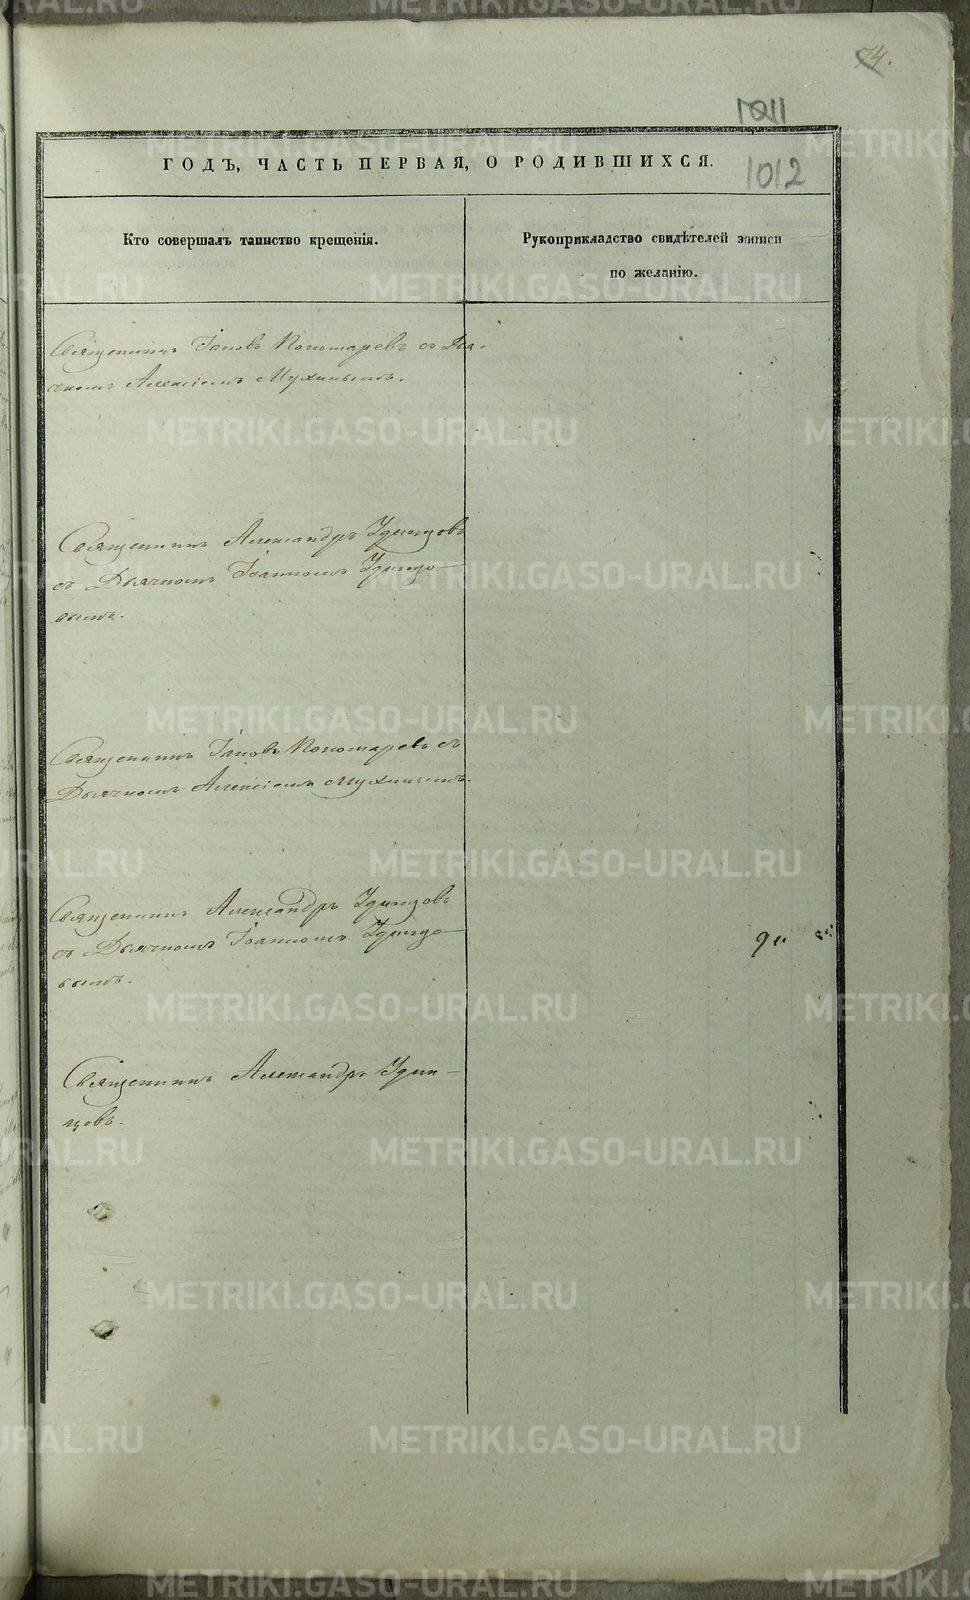 74.
1011
ГОДЪ, ЧАСТЬ ПЕРВАЯ, О РОДИВШИХСЯ.
1012
Кто совершалъ таинство крещенія.
Рукоприкладство свидѣтелей записи
по желанію.
Священникъ Іаковъ Пономаревъ съ Дья-
чкомъ Алексіемъ Мухинымъ.
Священникъ Александръ Удинцовъ
съ Дьячкомъ Іоанномъ Удинцо-
вымъ.
Священникъ Іаковъ Пономаревъ съ
Дьячкомъ Алексіемъ Мухинымъ.
Священникъ Александръ Удинцовъ
съ Дьячкомъ Іоанномъ Удинцо-
вымъ.
Священникъ Александръ Удин-
цовъ.
METRIKI.GASO-URAL.RU